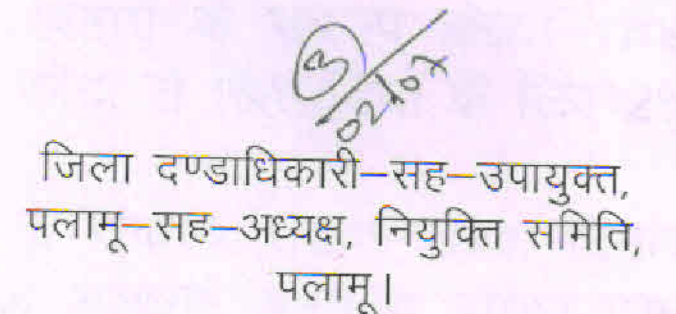 3
02/07
जिला दण्डाधिकारी–सह–उपायुक्त,
पलामू–सह–अध्यक्ष, नियुक्ति समिति,
पलामू।